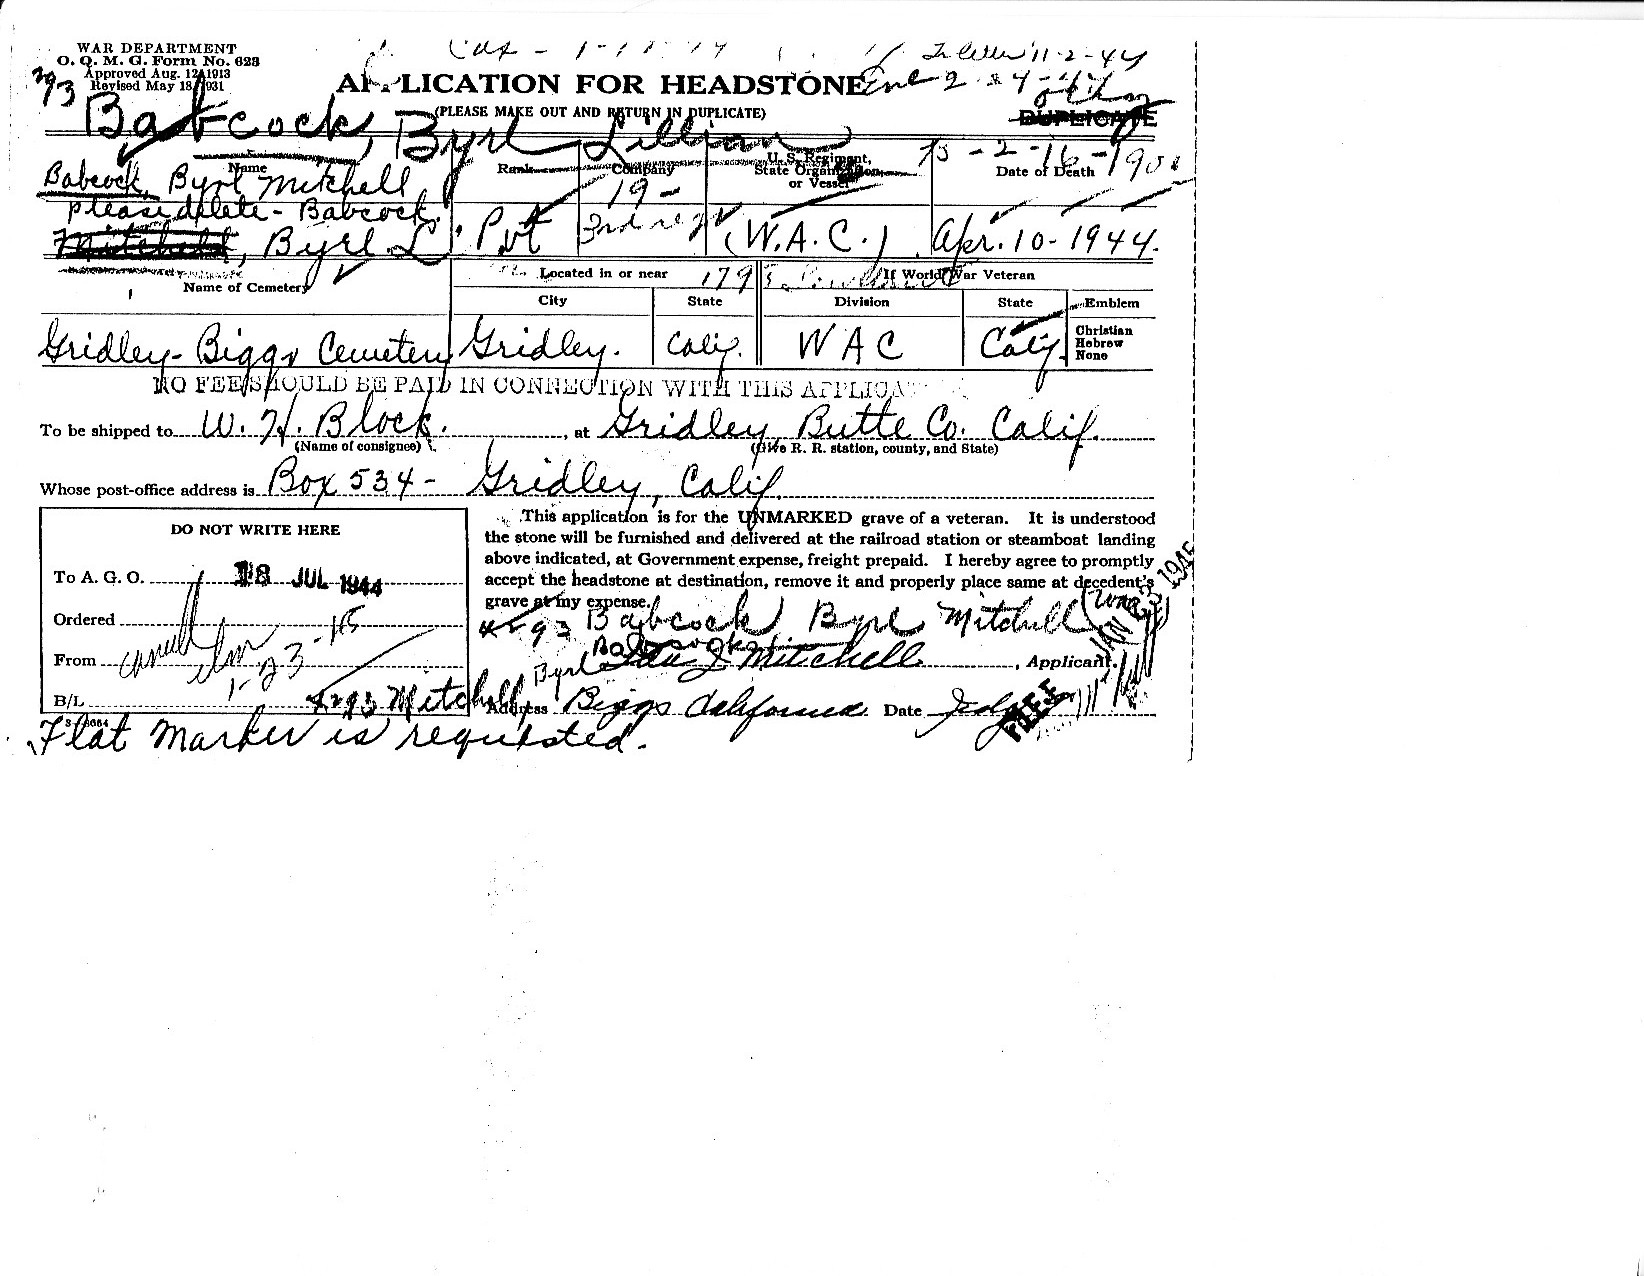 WAR DEPARTMENT
O. Q. M. G. Form No. 623
Approved Aug. 12, 1913
Revised May 18, 1931
In letter 11-2-44
293
APPLICATION FOR HEADSTONE
(PLEASE MAKE OUT AND RETURN IN DUPLICATE)
DUPLICATE
Babcock, Byrl Lillian
Name Rank Company U. S. Regiment, State Organization, or Vessel Date of Death
Babcock, Byrl Mitchell 19-
please delete - Babcock
Mitchell, Byrl L. Pvt 3rd regt (W.A.C.) Apr. 10-1944.
Name of Cemetery Located in or near If World War Veteran
City State Division State Emblem
Gridley-Biggs Cemetery Gridley. Calif. WAC Calif. Christian
Hebrew
None
NO FEE SHOULD BE PAID IN CONNECTION WITH THIS APPLICA
To be shipped to W. H. Block. , at Gridley, Butte Co. Calif.
(Name of consignee) (Give R. R. station, county, and State)
Whose post-office address is Box 534- Gridley, Calif.
DO NOT WRITE HERE
To A. G. O. 18 JUL 1944
Ordered
From
1-23-45
B/L
293 Mitchell
This application is for the UNMARKED grave of a veteran. It is understood
the stone will be furnished and delivered at the railroad station or steamboat landing
above indicated, at Government expense, freight prepaid. I hereby agree to promptly
accept the headstone at destination, remove it and properly place same at decedent's
grave at my expense.
Babcock Byrl Mitchell
JAN 23 1945
Byrl
Ida J. Mitchell , Applicant.
Address Biggs California Date
Flat marker is requested.